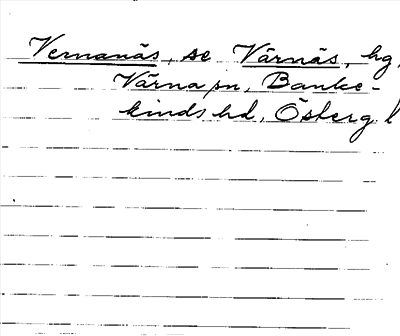 Vernanäs, se Värnäs, hg,
Värna sn, Banke-
kinds hd, Österg. l